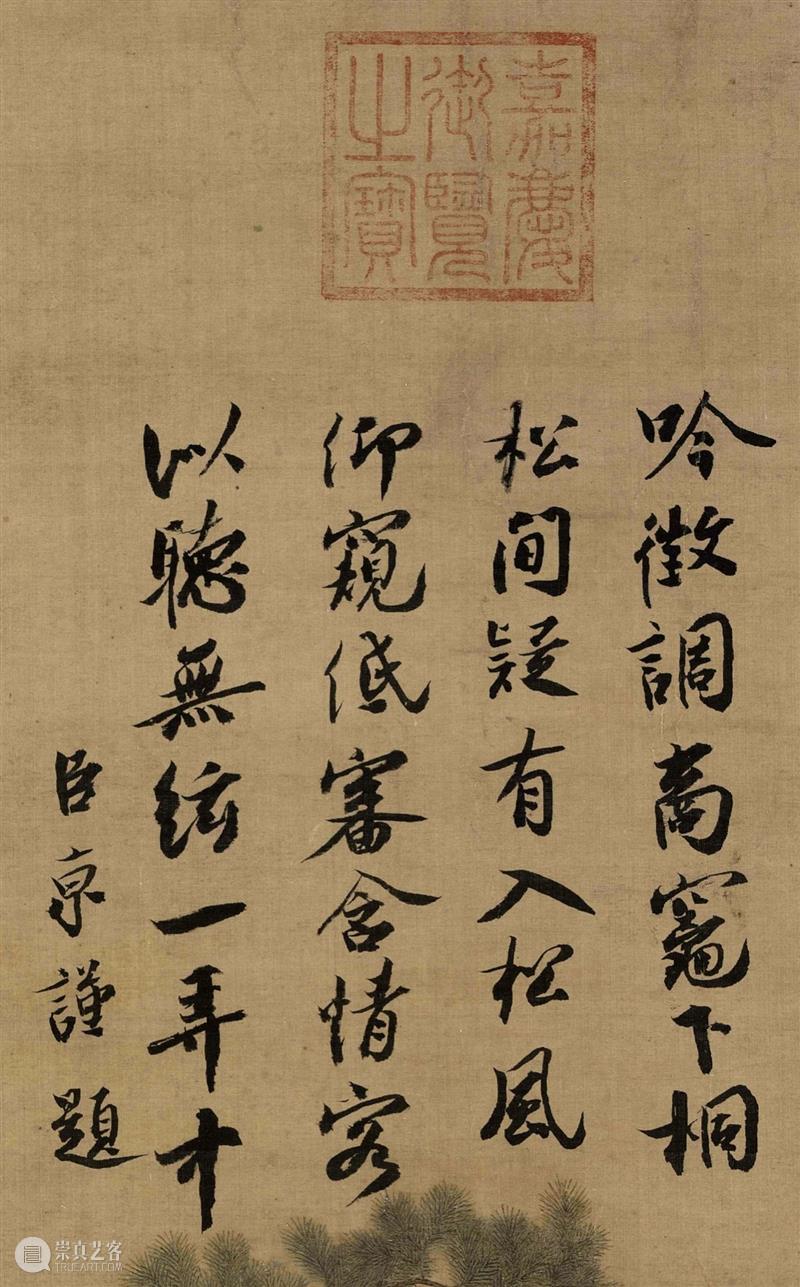 嘉慶
御覽
之寶
吟徵調商竈下桐
松間疑有入松風
仰窺低審含情客
以聽無絃一弄中
臣京謹題
崇真艺客
WWW.TRUEART.COM